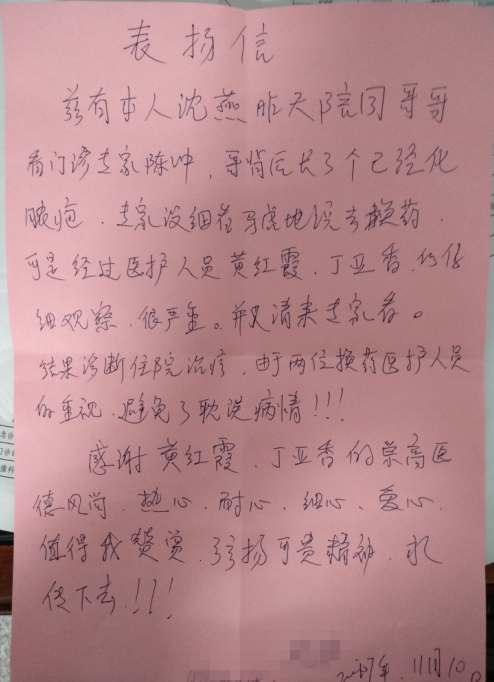 表扬信
兹有本人沈燕昨天陪同哥哥
看门诊专家陈冲，哥背后长了个已经化
脓疱．专家没细看马虎地说去换药．
可是经过医护人员黄红霞．丁亚香．的仔
细观察．很严重。并又请来专家看。
结果诊断住院治疗．由于两位换药医护人员
的重视．避免了耽误病情！！！
感谢黄红霞．丁亚香的崇高医
德风尚．热心．耐心．细心．爱心．
值得我赞美．弘扬可贵精神．永
传下去！！！
年．11月10日
急诊
门诊
像科